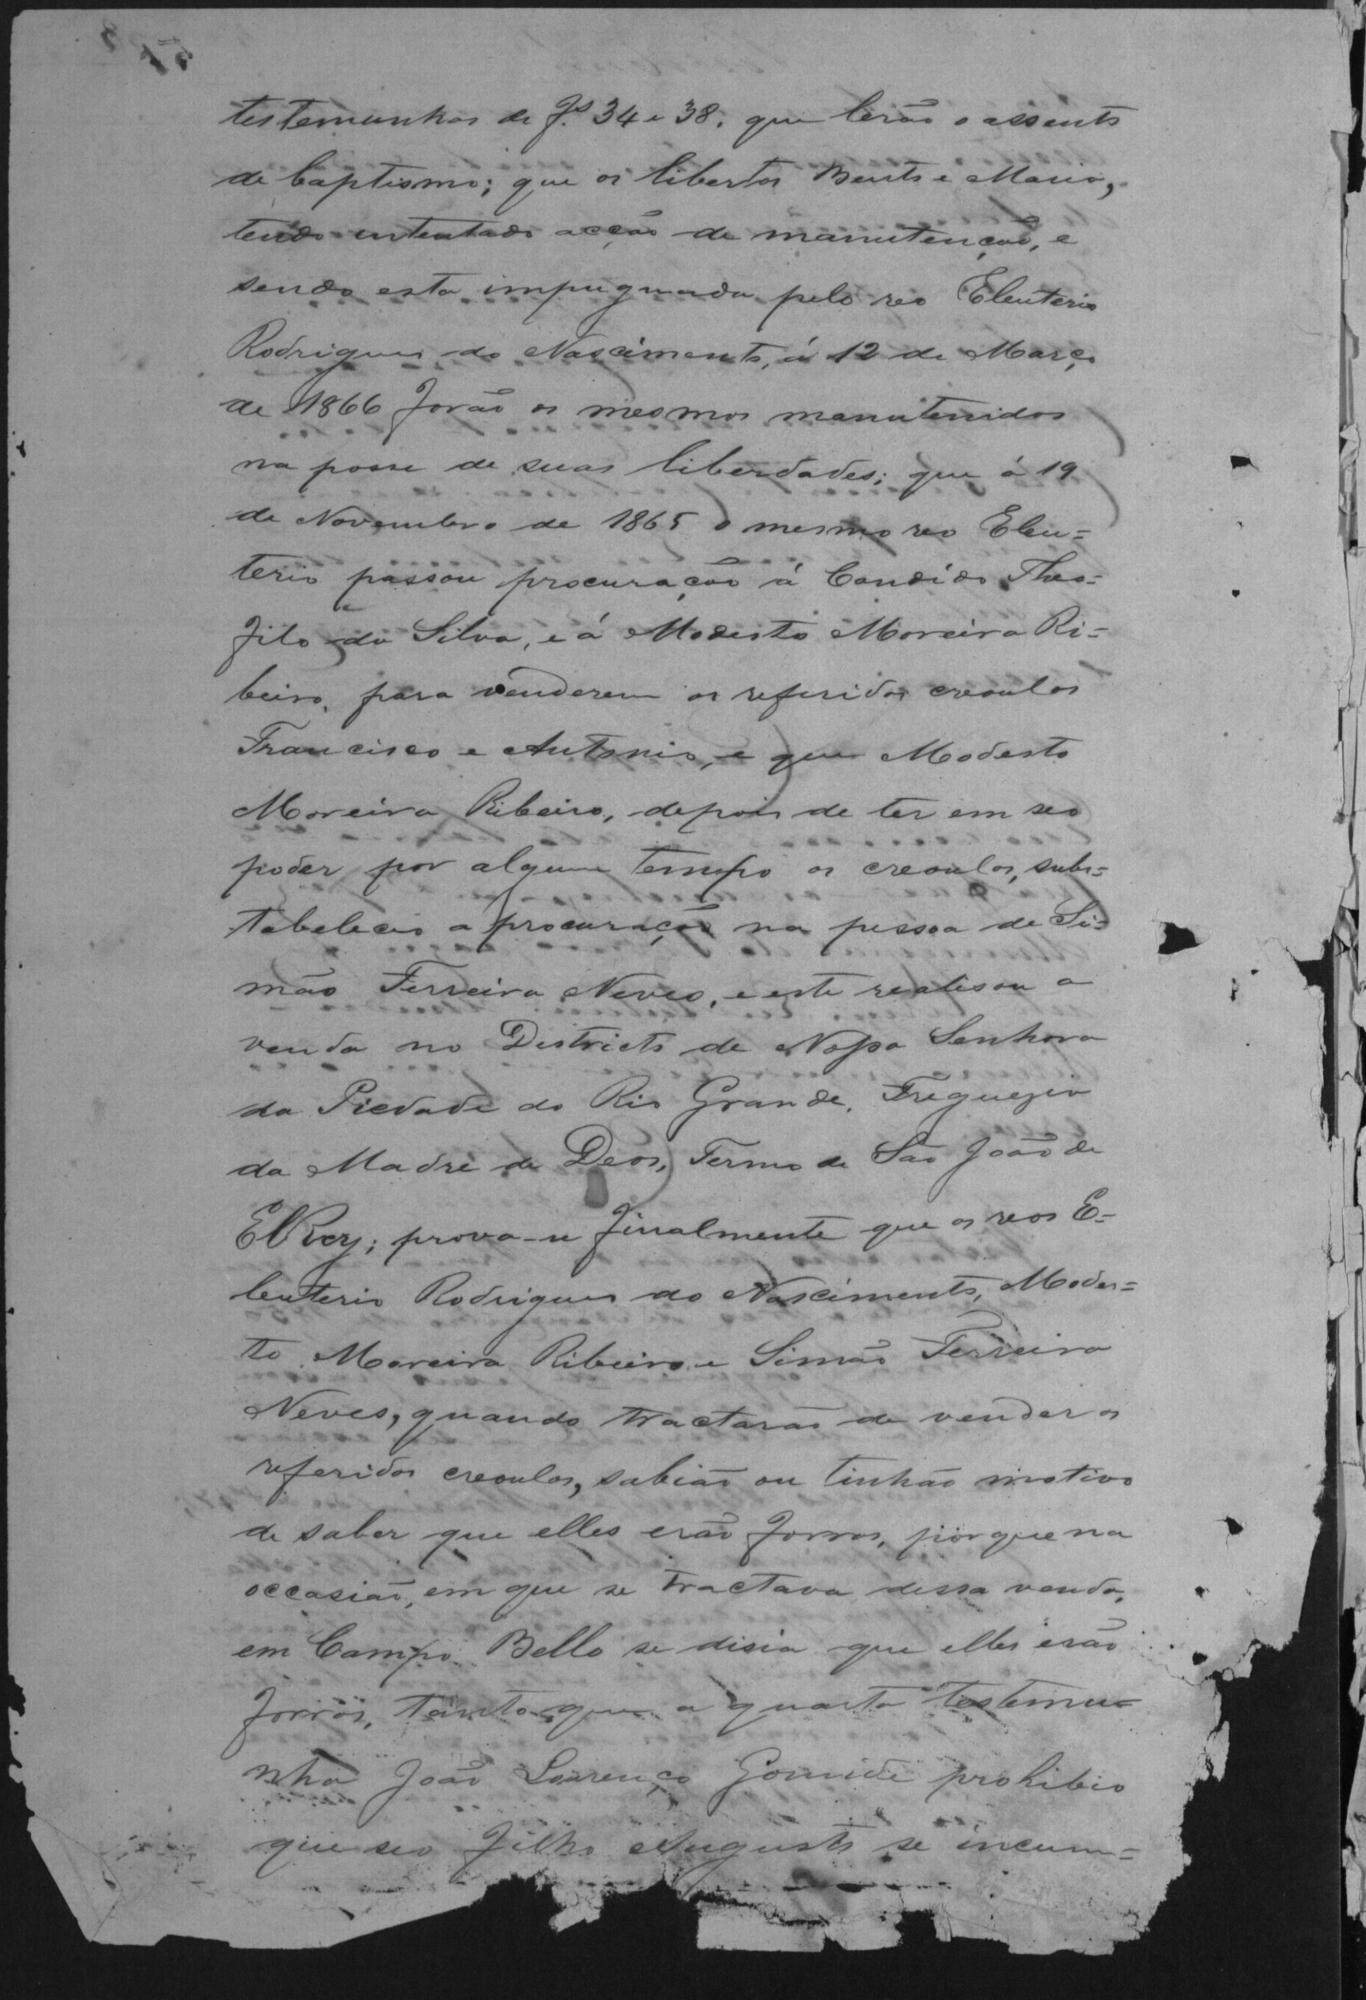 testemunhas de fs. 34 e 38, que lerão o assento
de baptismo; que os libertos Bento e Maria,
tendo intentado acção de manutenção, e
sendo esta impugnada pelo reo Eleuterio
Rodrigues do Nascimento, á 12 de Março
de 1866 forão os mesmos manutenidos
na posse de suas liberdades; que á 19
de Novembro de 1865 o mesmo reo Eleu=
terio passou procuração á Candido Theo=
filo da Silva, e á Modesto Moreira Ri=
beiro, para venderem os referidos creoulos
Francisco e Antonio, e que Modesto
Moreira Ribeiro, depois de ter em seo
poder por algum tempo os creoulos, subs=
tabeleceo a procuração na pessoa de Si=
mão Ferreira Neves, e este realisou a
venda no Districto de Nossa Senhora
da Piedade do Rio Grande, Freguezia
da Madre de Deos, Termo de São João de
El Rey; prova-se finalmente que os reos E=
leuterio Rodrigues do Nascimento, Modes=
to Moreira Ribeiro e Simão Ferreira
Neves, quando tractarão de vender os
referidos creoulos, sabião ou tinhão motivo
de saber que elles erão forros, porque na
occasião, em que se tractava dessa venda,
em Campo Bello se disia que elles erão
forros, tanto que a quarta testemu=
nha João Lourenço Gomide prohibio
que seo filho Augusto se incum=